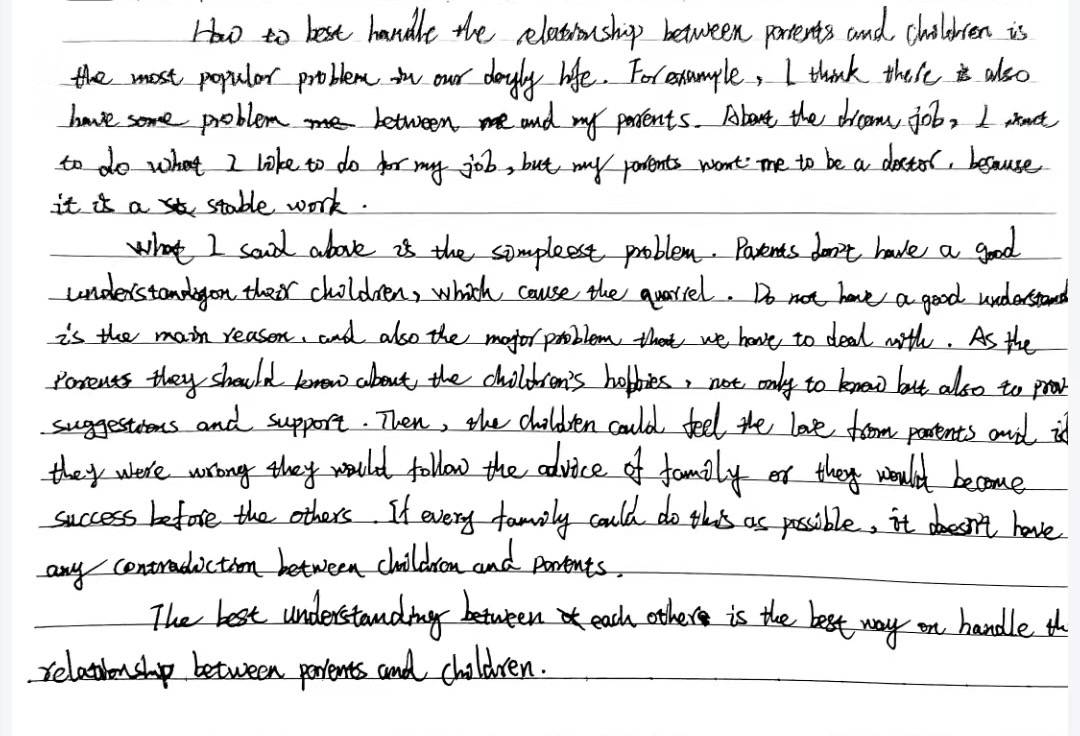 How to best handle the relationship between parents and children is
the most popular problem in our dayly life. For example, I think there is also
have some problem me between me and my parents. About the dream job, I want
to do what I like to do for my job, but my parents want me to be a doctor, because
it is a sta stable work.
What I said above is the simpleest problem. Parents don't have a good
understandyon their children, which cause the quarrel. Do not have a good understand
is the main reason, and also the major problem that we have to deal with. As the
Parents they should know about the children's hobbies, not only to know but also to prov
suggestions and support. Then, the children could feel the love from parents and if
they were wrong they would follow the advice of family or they would become
success before the others. If every family could do this as possible, it doesn't have
any contradiction between children and parents.
The best understanding between each others is the best way on handle th
relationship between parents and children.